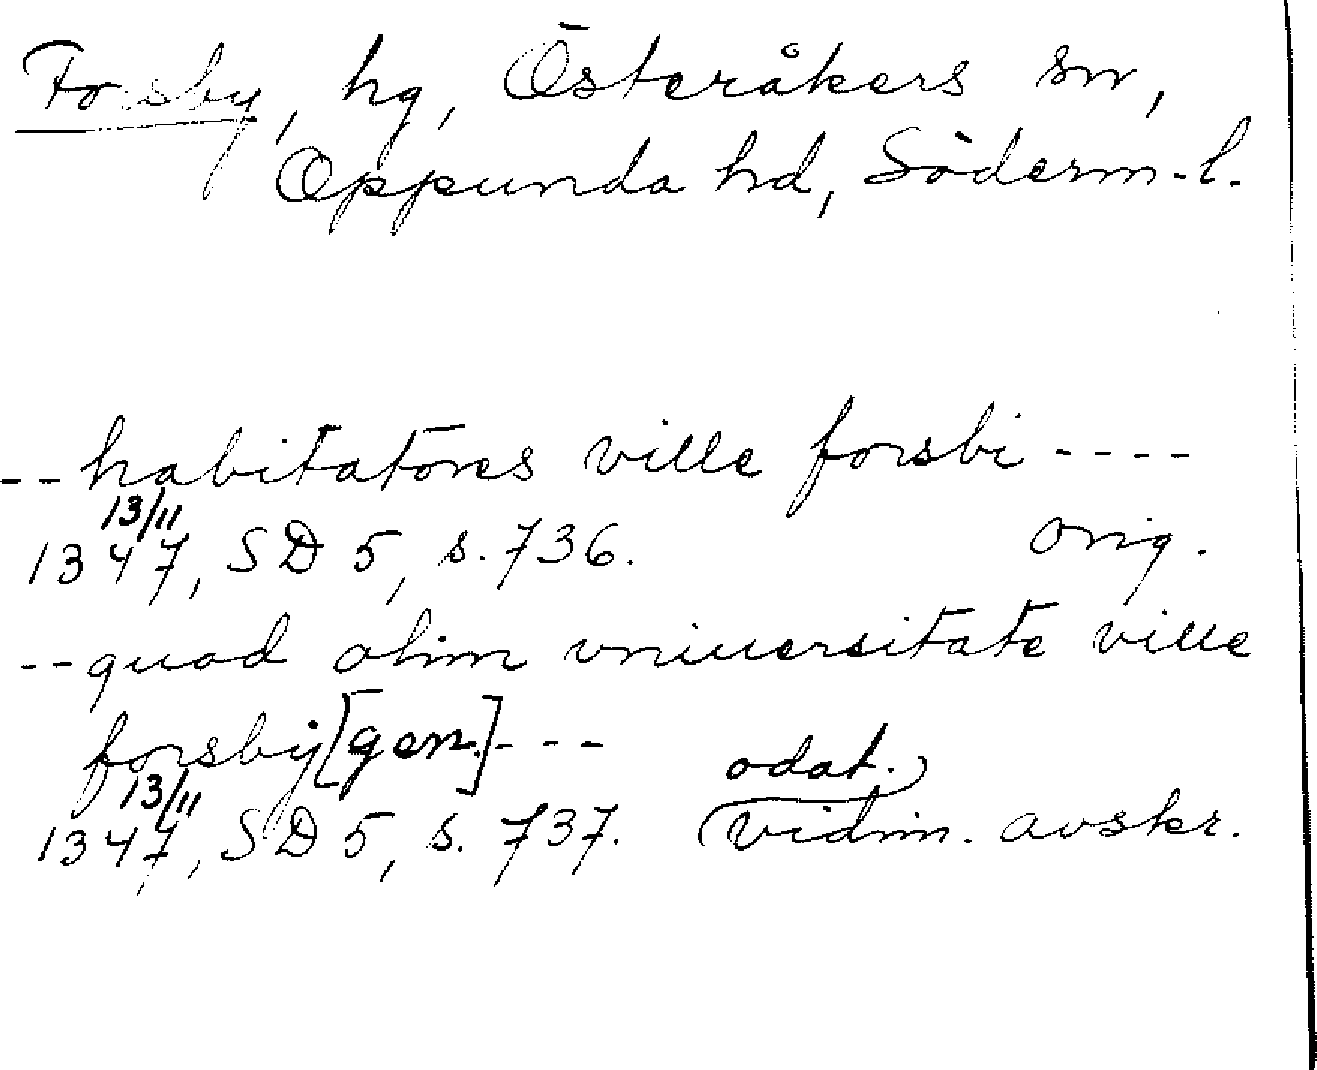 Forsby, hg, Österåkers sn,
Oppunda hd, Söderm.l.
-- habitatores ville forsbi ----
13/11
1347, SD 5, s. 736. orig.
-- quod olim vniuersitate ville
forsbÿ [gen.] ---
odat.
13/11
1347, SD 5, s. 737. vidim. avskr.